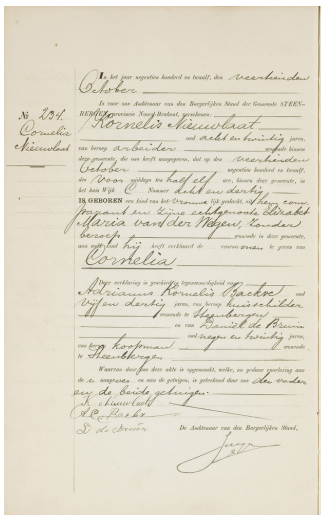 No 234.
Cornelia
Nieuwlaat
In het jaar negentien honderd en twaalf, den veertienden
October
is voor ons Ambtenaar van den Burgerlijken Stand der Gemeente STEEN-
BERGEN, provincie Noord-Brabant, verschenen:
Kornelis Nieuwlaat
oud acht en twintig jaren,
van beroep arbeider wonende binnen
deze gemeente, die ons heeft aangegeven, dat op den veertienden
October negentien honderd en twaalf,
des voor middags ten half elf ure, binnen deze gemeente, in
het huis Wijk C Nummer acht en dertig
IS GEBOREN een kind van het vrouwelijk geslacht, uit hem com
parant en zijne echtgenoote Elizabeth
Maria van der Wegen, zonder
beroep wonende in deze gemeente,
aan welk kind hij heeft verklaard de voornamen te geven van
Cornelia
Deze verklaring is geschied in tegenwoordigheid van
Adrianus Kornelis Backx oud
vijf en dertig jaren, van beroep huisschilder
wonende te Steenbergen
en van Daniël de Bruin
oud negen en twintig jaren,
van beroep koopman wonende
te Steenbergen
Waarvan door ons deze akte is opgemaakt, welke, na gedane voorlezing aan de
en aangever en aan de getuigen, is geteekend door ons den vader
en de beide getuigen.
K. Nieuwlaat
A C Backx
D de Bruin
De Ambtenaar van den Burgerlijken Stand,